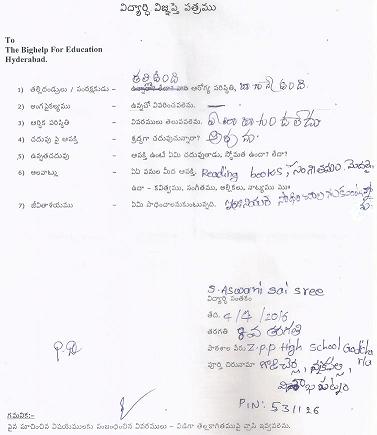 విద్యార్ధి విజ్ఞప్తి పత్రము
To
The Bighelp For Education
Hyderabad.
1) తల్లిదండ్రులు / సంరక్షకుడు – ఆరోగ్య పరిస్థితి,
2) అంగవైకల్యము – ఉన్నచో వివరించవలెను.
3) ఆర్థిక పరిస్థితి – వివరములు తెలుపవలెను.
4) చదువు పై ఆసక్తి – శ్రద్ధగా చదువుచున్నారా?
5) ఉన్నతచదువు – ఆసక్తి ఉంటే ఏమి చదువుతాడు, స్తోమత ఉందా? లేదా?
6) అలవాట్లు – ఏ పనుల మీద ఆసక్తి. Reading books, సంగీతము
ఉదా – కవిత్వము, సంగీతము, అల్లికలు, నాట్యము
7) జీవితాశయము – ఏమి సాధించాలనుకుంటున్నది.
S. Aswani Sai Sree
విద్యార్థి సంతకం
తేది. 4/7/2016
తరగతి 8వ తరగతి
పాఠశాల పేరు Z.P.P High School
పూర్తి చిరునామా
PIN: 531126
గమనిక:-
పైన సూచించిన విషయములకు సంబంధించిన వివరములు – విడిగా తెల్లకాగితముపై వ్రాసి ఇవ్వవలెను.